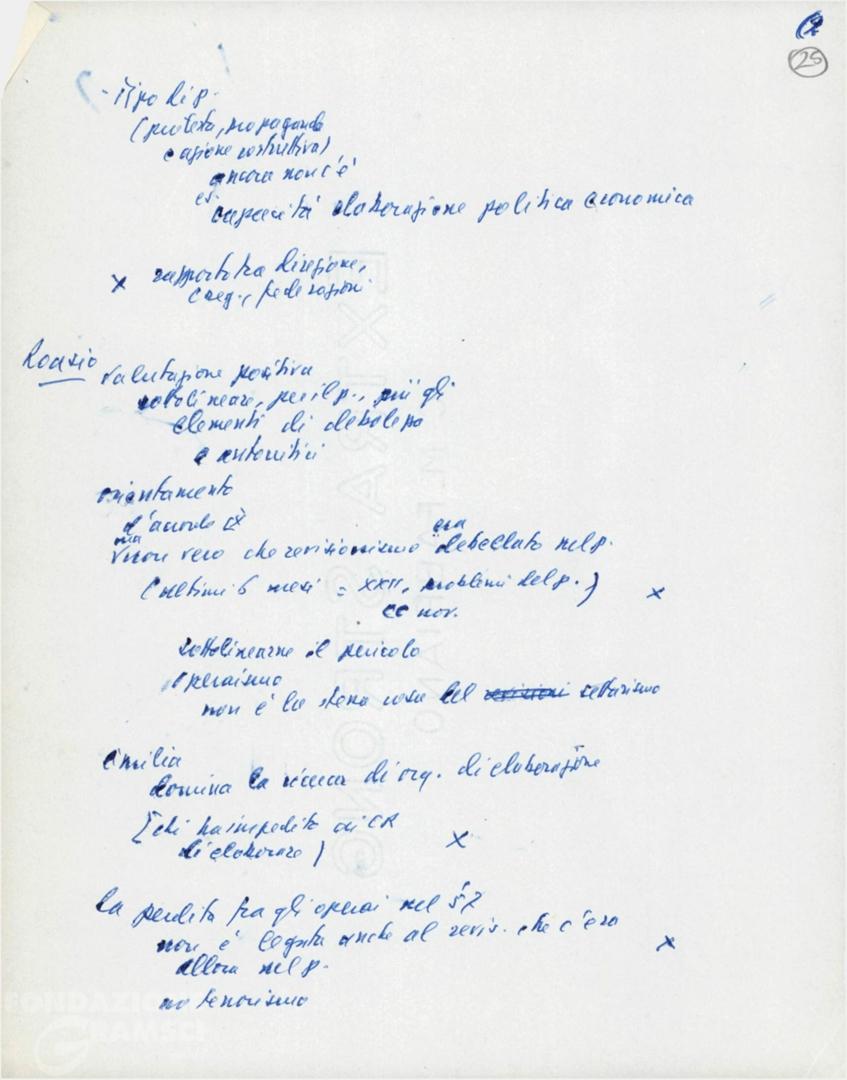 25
- Tipo di p.
(protesta, propaganda
e azione costruttiva)
ancora non c'è
es.
capacità elaborazione politica economica
x rapporto tra direzione,
C reg., federazioni
Roasio
valutazione positiva
sottolineare, per il p., più gli
elementi di debolezza
e autocritici
orientamento
d'accordo
ma
non vero che revisionismo era debellato nel p.
(ultimi 6 mesi = XXII, problemi del p.) x
CC nov.
sottolinearne il pericolo
operaismo
non è la stessa cosa del settarismo
Emilia
domina la ricerca di org. di elaborazione
[chi ha impedito ai CR
di elaborare) x
la perdita fra gli operai nel 57
non è legata anche al revis. che c'era x
allora nel p.
no terrorismo
FONDAZIONE
GRAMSCI
EXTRA STRONG